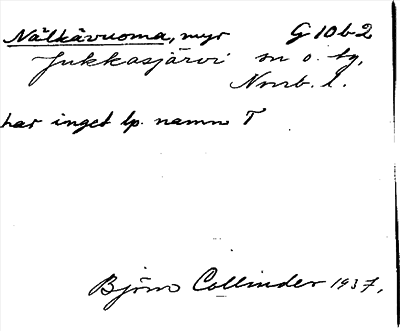 Nälkävuoma, myr G 10 b 2
Jukkasjärvi sn o. tg,
Nmrb. l.
har inget lp. namn T
Björn Collinder 1937.